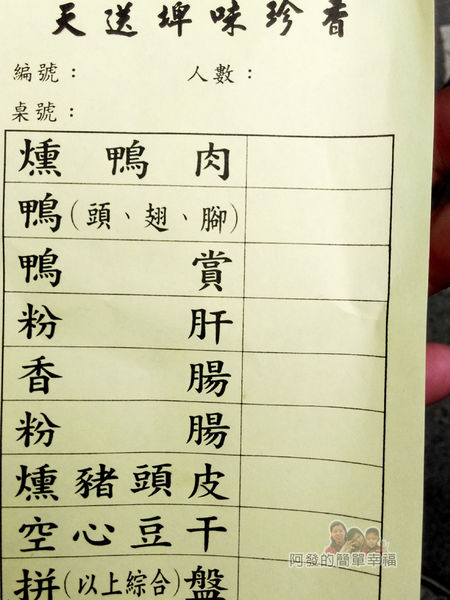 天送埤味珍香
編號： 人數：
桌號：
燻鴨肉
鴨(頭、翅、腳)
鴨賞
粉肝
香腸
粉腸
燻豬頭皮
空心豆干
拼(以上綜合)盤
阿發的簡單幸福